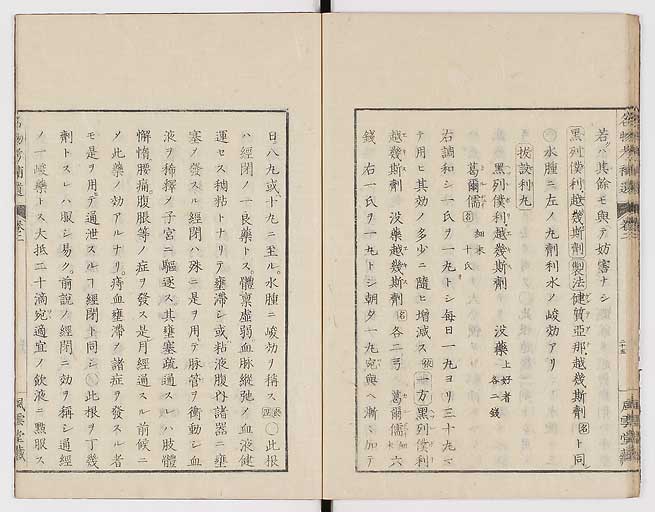 若ハ其餘モ與テ妨害ナシ
黑列僕利越幾斯劑製法健質亞那越幾斯劑名ト同
水腫ニ左ノ丸劑利水ノ峻効アリ
抜設利丸
黑列僕利越幾斯劑 沒藥 上好者 各二錢
葛爾儒名 細末 十氏
右調和シ一氏ヲ一丸トシ每日一丸ヨリ三十丸マ
テ用ヒ其効ノ多少ニ隨ヒ增減ス 一方黑列僕利
越幾斯劑 沒藥越幾斯劑名各二弓 葛爾儒細末六
錢 右一氏ヲ一丸トシ朝夕一丸宛與ヘ漸々加テ
日八九或十九ニ至ル。水腫ニ峻効ヲ稱ス 此根
ハ經閉ノ一良藥トス。體稟虛弱血脉縱弛ノ血液健
運セス稠黏トナリテ壅滯シ或粘液腹內諸器ニ壅
塞ノ發スル經閉ハ殊ニ是ヲ用テ脉管ヲ衝動シ血
液ヲ稀釋ノ子宮ニ驅逐ス其壅塞疏通スルハ肢體
懈惰腰痛腹脹等ノ症ヲ發ス是月經通スル前候ニ
ノ此藥ノ効アルナリ。痔血壅滯ノ諸症ヲ發スル者
モ是ヲ用テ通泄スルヿ經閉ト同シ 此根ヲ丁幾
劑トスレハ服シ易ク。前說ノ經閉ニ効ヲ稱シ通經
ノ一峻藥トス大抵二十滴宛適宜ノ飮液ニ點服ス
風雲堂藏